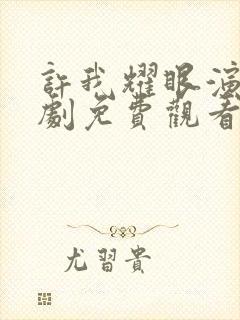 許我耀眼演
劇免費觀看
尤習貴